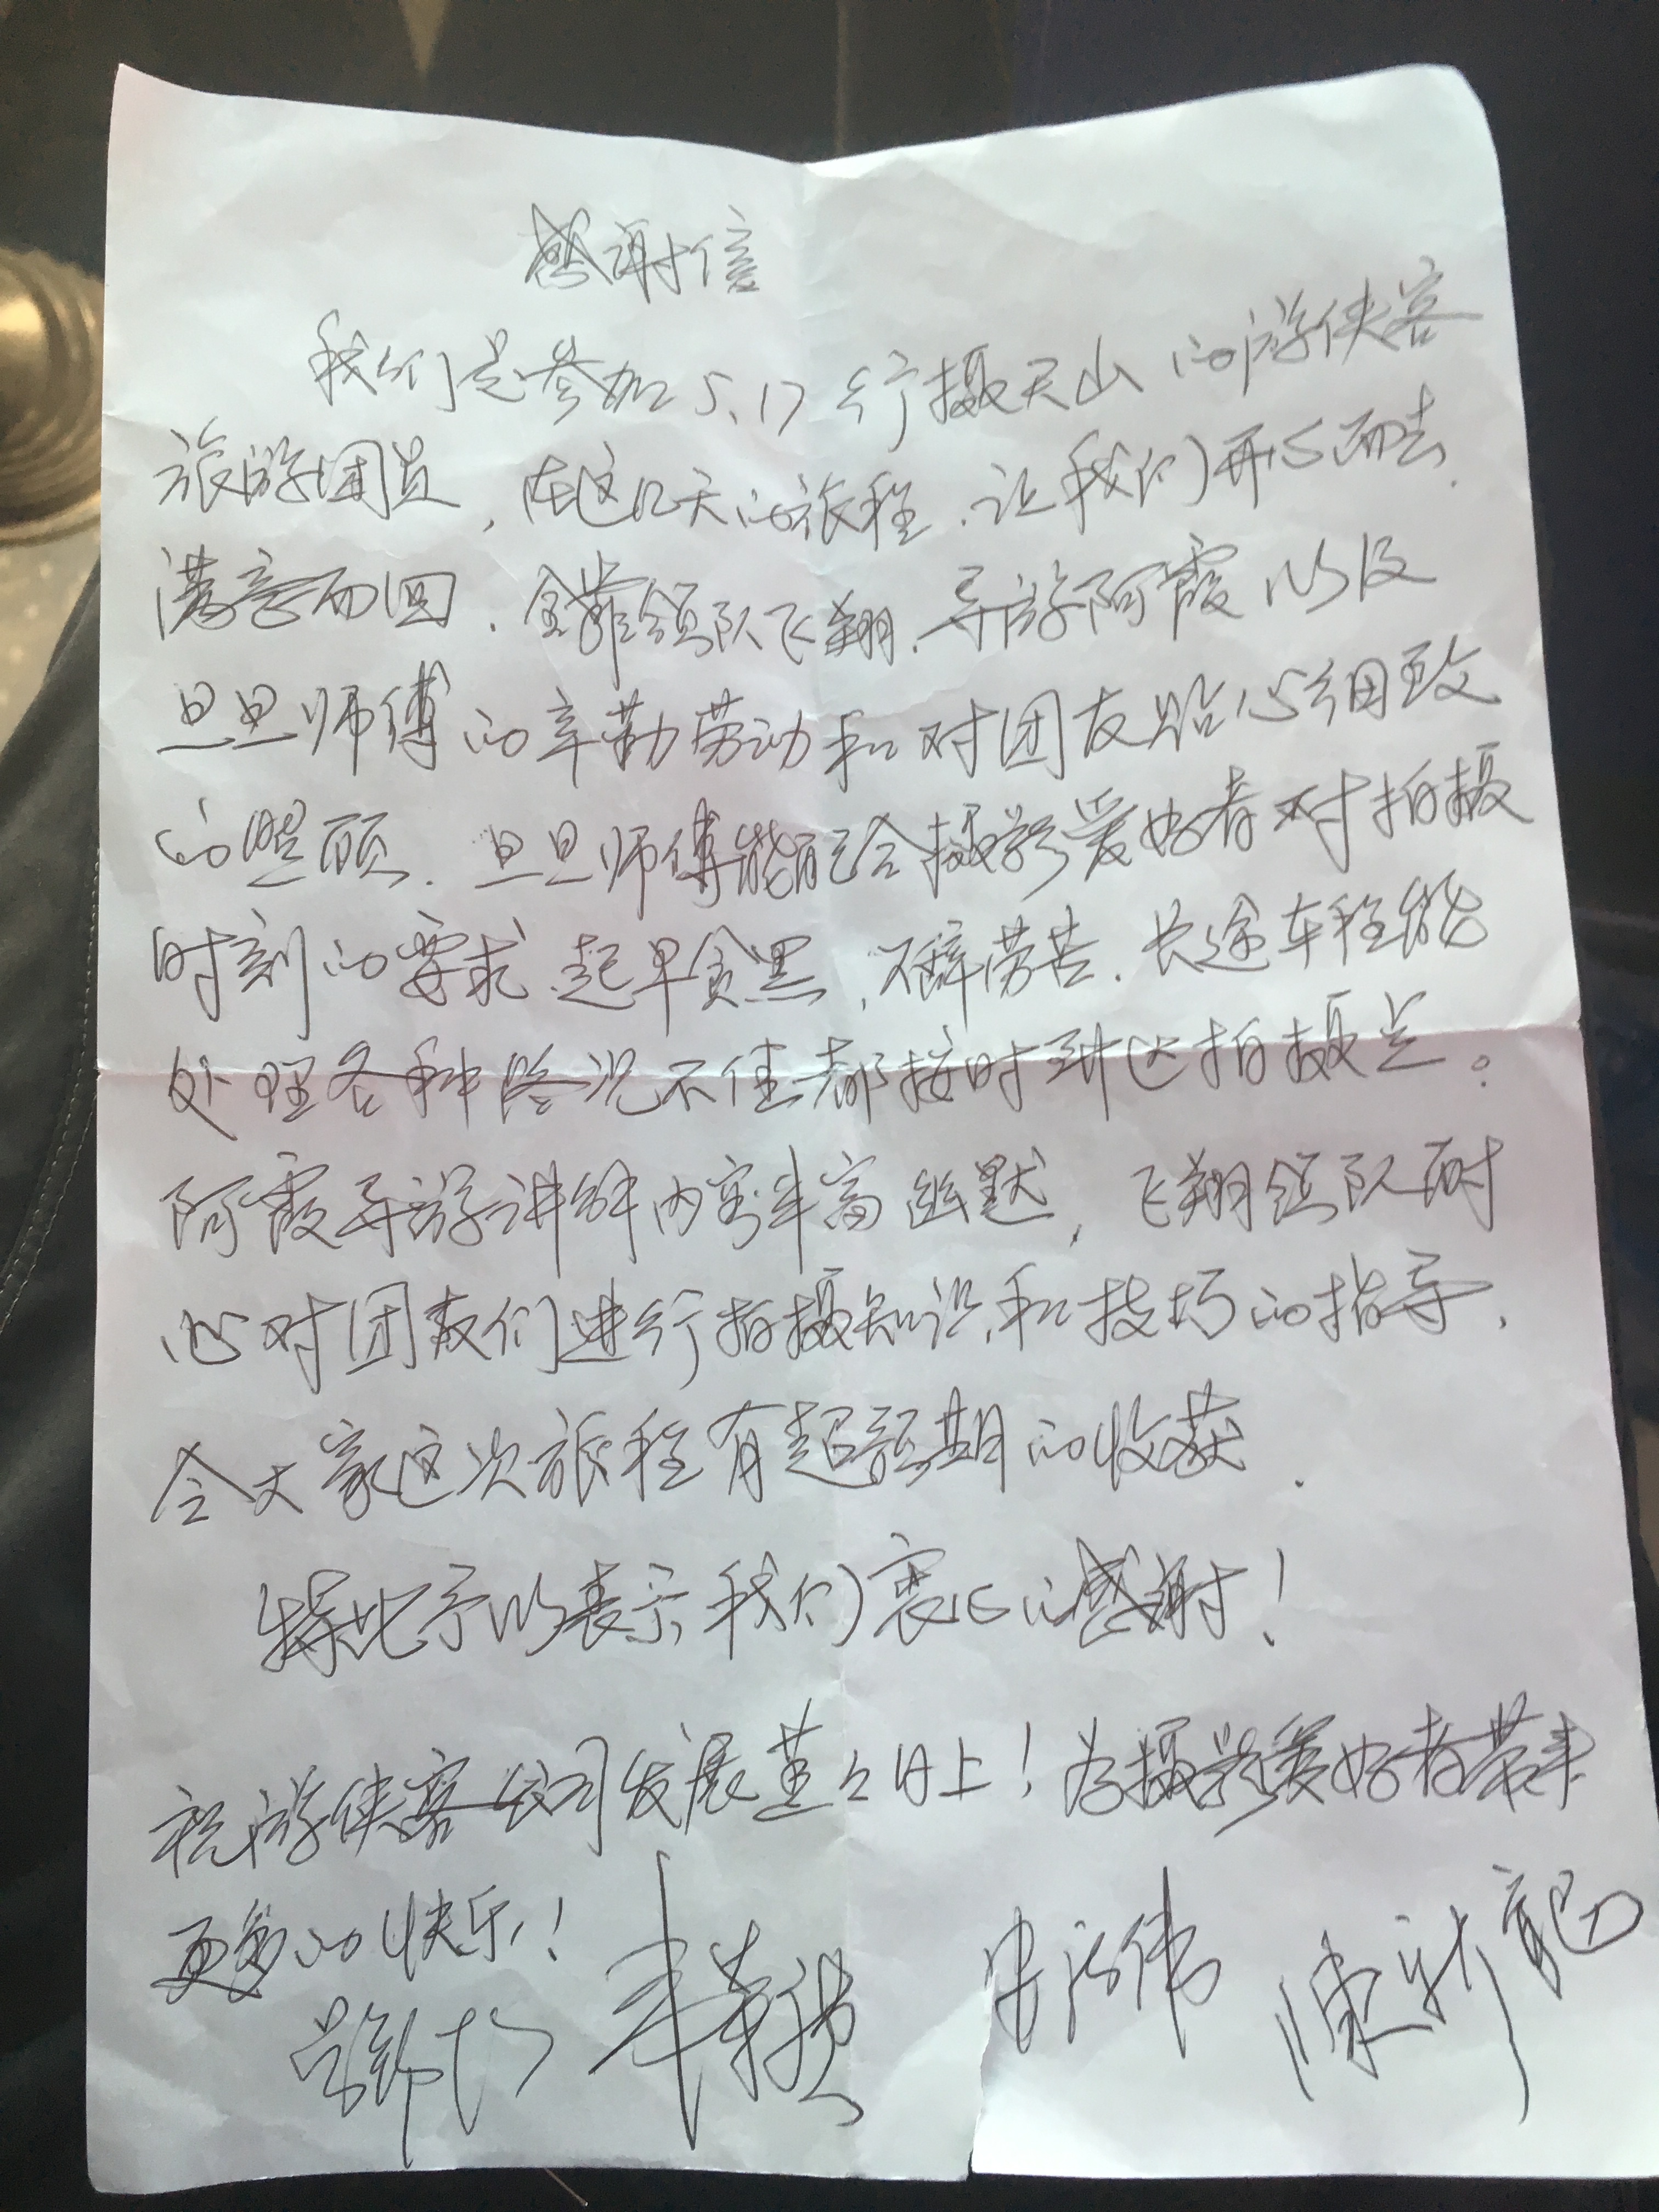 感谢信
我们是参加5.17行摄天山的游侠客
旅游团员,在这几天的旅程.让我们开心而去.
满意而回.全靠领队飞翔.导游阿霞以及
旦旦师傅的辛勤劳动和对团友贴心细致
的照顾.旦旦师傅能配合摄影爱好者对拍摄
时刻的要求起早贪黑,不辞劳苦.长途车程能
处理各种路况不佳都按时到达拍摄点。
阿霞导游讲解内容丰富幽默,飞翔领队耐
心对团友们进行拍摄知识和技巧的指导.
令大家这次旅程有超预期的收获.
特此予以表示我们衷心的感谢!
祝游侠客公司发展蒸蒸日上!为摄影爱好者带来
更多的快乐!